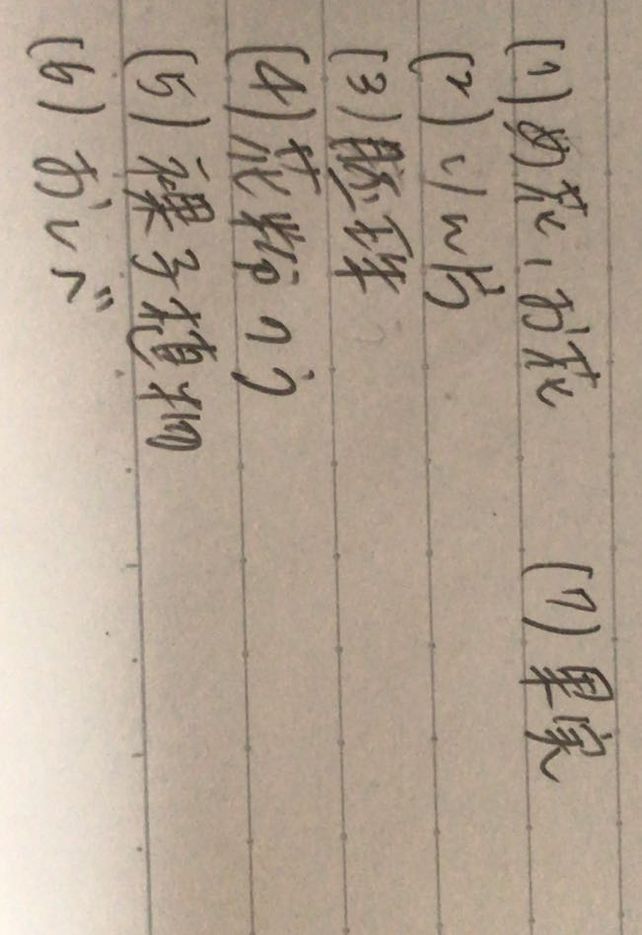 (1) め花、お花
(2) りん片
(3) 胚珠
(4) 花粉のう
(5) 裸子植物
(6) おしべ
(7) 果実